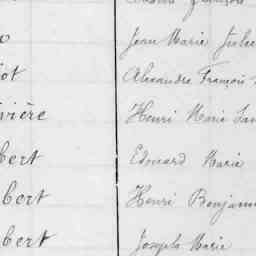 o Jean Marie Jules
ot Alexandre François
vière Henri Marie
bert Edouard Marie
bert Henri Benjamin
bert Joseph Marie